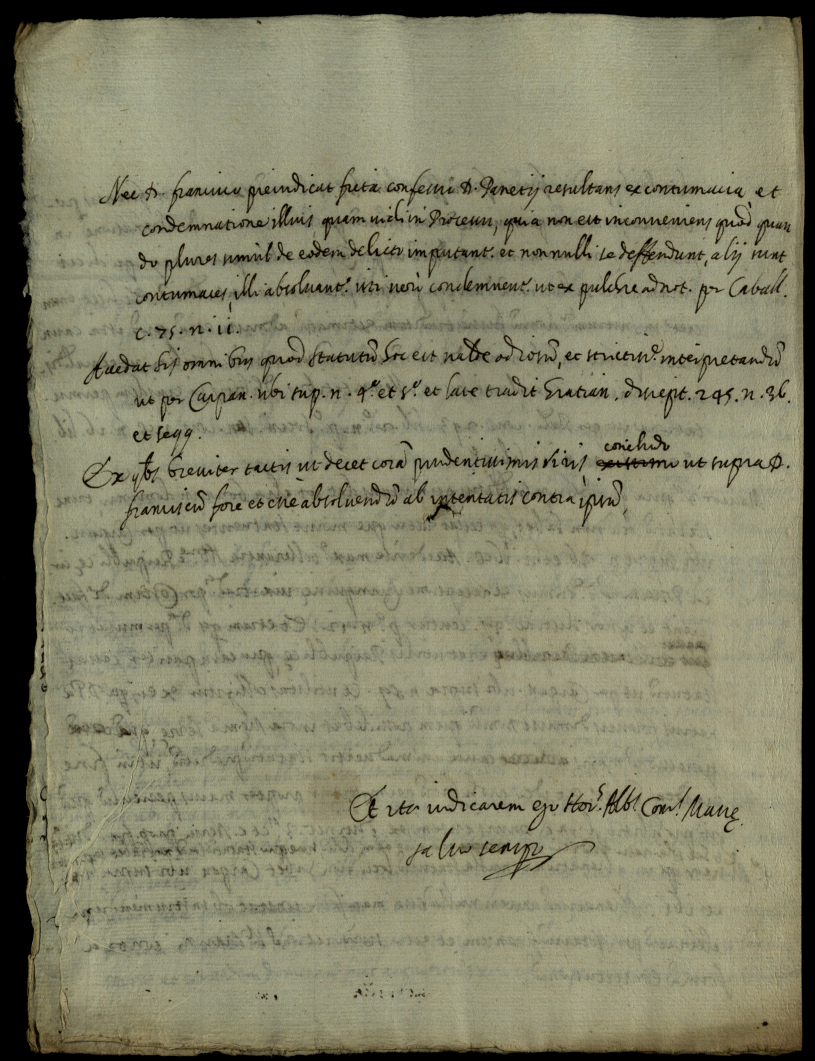 Nec D. francisco preiudicat ficta confessio D. Panetij resultans ex contumacia et
condemnatione illius, quam vidi in Processu, quia non est inconueniens quod quan
do plures simul de eodem delicto imputant.r et nonnulli se deffendunt, alij sunt
contumaces, illi absoluant.r isti uerò condemnent.r ut ex pulchre adnot. per Caball.
c. 75. n. 11.
Accedat his omnibus quod Statutũ hoc est odiosũ, et strictiss.e interpretandũ
ut per Carpan. ubi sup. n. 4.o et 5.o et late tradit Gratian. discept. 245. n. 36.
et seqq.
Ex qbs breuiter tactis ut decet corã prudentissimis Viris concludo ut supra D.
franciscũ fore et esse absoluendũ ab intentatis contra ipsum,
Et ita iudicarem ego Alb.s
saluo semper